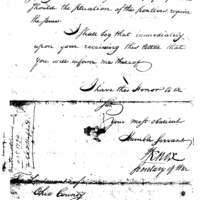 Should the situation of the frontiers, require
the same.
I shall beg that immediately
upon your receiving this letter that
you will inform me thereof
I have the Honor to be
Sir
Your most obedient
Humble Servant
HKnox
Secretary of War
Lieutenant of
Ohio County